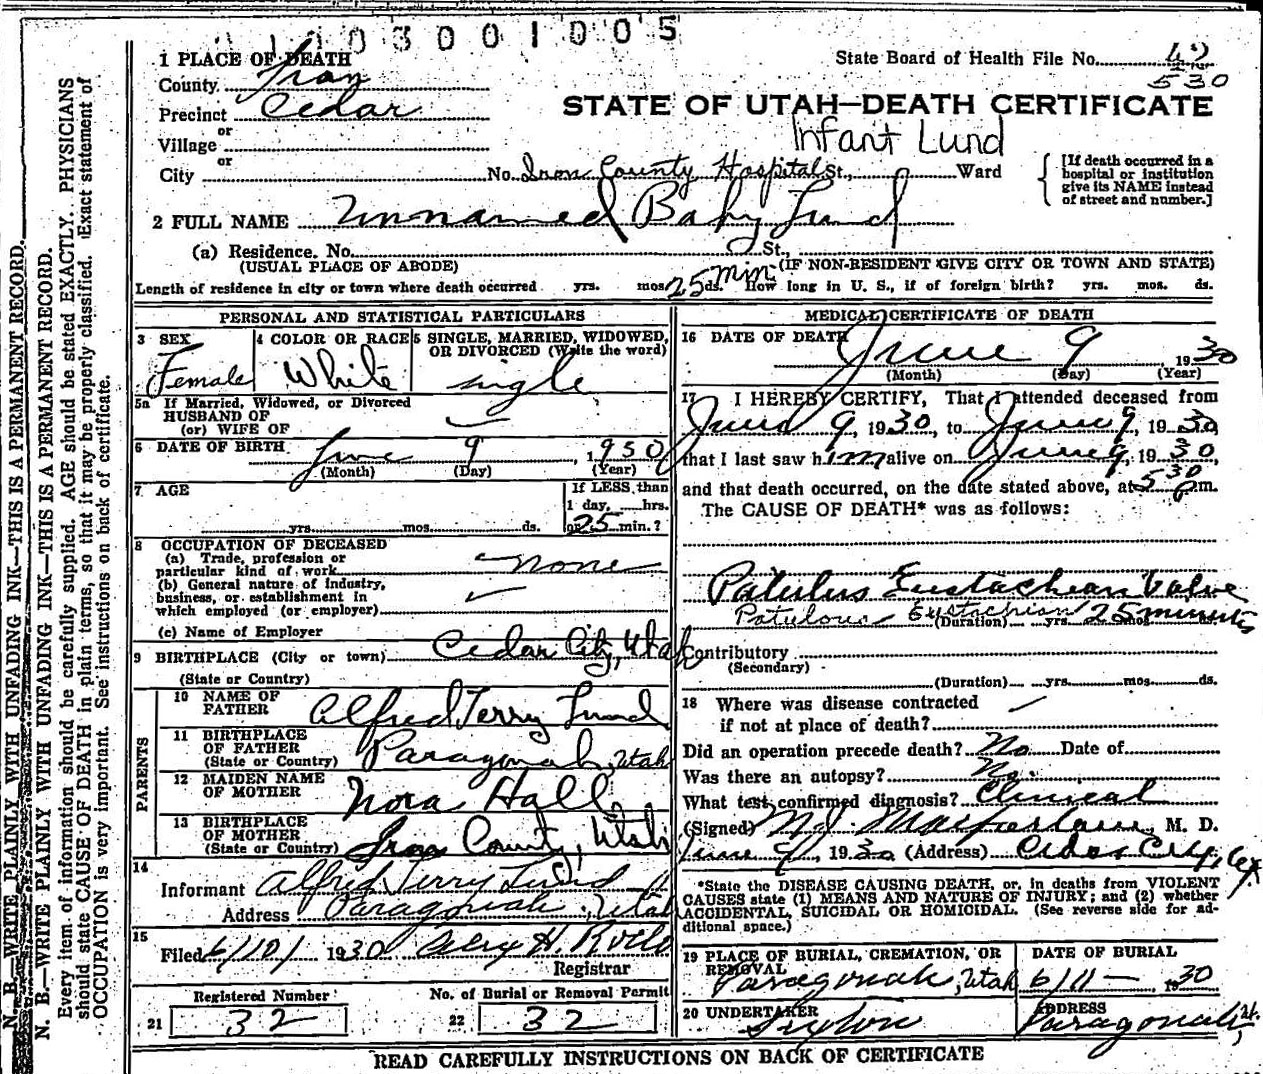 1003001005
1 PLACE OF DEATH
County Iron
Precinct Cedar
or
Village
or
City
State Board of Health File No. 42
530
STATE OF UTAH—DEATH CERTIFICATE
Infant Lund
No. Iron County Hospital St., Ward
[If death occurred in a
hospital or institution
give its NAME instead
of street and number.]
2 FULL NAME Unnamed Baby Lund
(a) Residence. No. St.,
(USUAL PLACE OF ABODE) (IF NON-RESIDENT GIVE CITY OR TOWN AND STATE)
Length of residence in city or town where death occurred yrs. mos. 25 min ds. How long in U. S., if of foreign birth? yrs. mos. ds.
PERSONAL AND STATISTICAL PARTICULARS
3 SEX
Female
4 COLOR OR RACE
White
5 SINGLE, MARRIED, WIDOWED,
OR DIVORCED (Write the word)
single
5a If Married, Widowed, or Divorced
HUSBAND OF
(or) WIFE OF
6 DATE OF BIRTH June 9, 1950
(Month) (Day) (Year)
7 AGE
yrs. mos. ds.
If LESS than
1 day, hrs.
or 25 min.?
8 OCCUPATION OF DECEASED
(a) Trade, profession or
particular kind of work none
(b) General nature of industry,
business, or establishment in
which employed (or employer)
(c) Name of Employer
9 BIRTHPLACE (City or town) Cedar City, Utah
(State or Country)
PARENTS
10 NAME OF
FATHER Alfred Terry Lund
11 BIRTHPLACE
OF FATHER
(State or Country) Paragonah, Utah
12 MAIDEN NAME
OF MOTHER Nora Hall
13 BIRTHPLACE
OF MOTHER
(State or Country) Iron County, Utah
14
Informant Alfred Terry Lund
Address Paragonah, Utah
15
Filed 6/10/ 1930
Registrar
Registered Number No. of Burial or Removal Permit
21 32 22 32
MEDICAL CERTIFICATE OF DEATH
16 DATE OF DEATH June 9, 1930
(Month) (Day) (Year)
17 I HEREBY CERTIFY, That I attended deceased from
June 9, 1930, to June 9, 1930,
that I last saw him alive on June 9, 1930,
and that death occurred, on the date stated above, at 530 p m.
The CAUSE OF DEATH* was as follows:
Patulus Eustachean Valve
Patulous Eustachian
(Duration) yrs. 25 minutes mos.
Contributory
(Secondary)
(Duration) yrs. mos. ds.
18 Where was disease contracted
if not at place of death?
Did an operation precede death? No Date of
Was there an autopsy? No.
What test confirmed diagnosis? Clinical
(Signed) M. J. Macfarlane, M. D.
June 9, 1930 (Address) Cedar City,
*State the DISEASE CAUSING DEATH, or, in deaths from VIOLENT
CAUSES state (1) MEANS AND NATURE OF INJURY; and (2) whether
ACCIDENTAL, SUICIDAL OR HOMICIDAL. (See reverse side for ad-
ditional space.)
19 PLACE OF BURIAL, CREMATION, OR
REMOVAL
Paragonah, Utah
DATE OF BURIAL
6/11— 1930
20 UNDERTAKER
ADDRESS
Paragonah,
READ CAREFULLY INSTRUCTIONS ON BACK OF CERTIFICATE
N. B.—WRITE PLAINLY WITH UNFADING INK—THIS IS A PERMANENT RECORD.
N. B.—WRITE PLAINLY WITH UNFADING INK—THIS IS A PERMANENT RECORD.
Every item of information should be carefully supplied. AGE should be stated EXACTLY. PHYSICIANS
should state CAUSE OF DEATH in plain terms, so that it may be properly classified. Exact statement of
OCCUPATION is very important. See instructions on back of certificate.